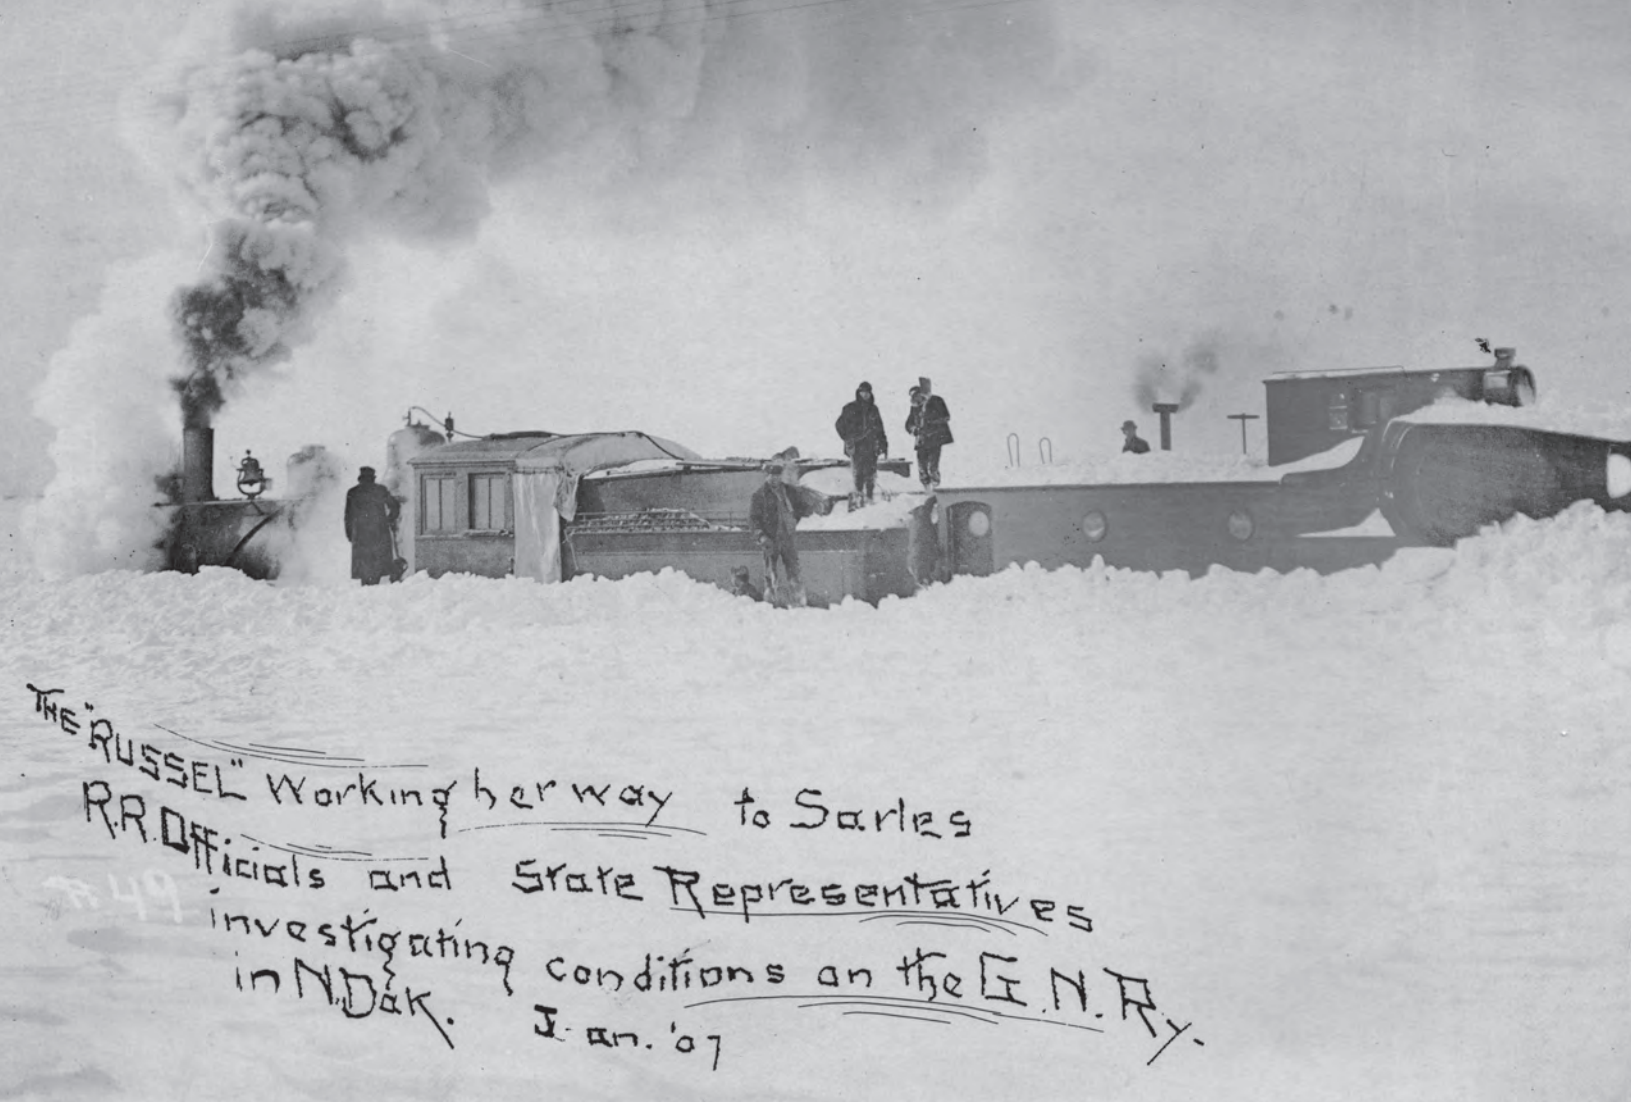 THE "RUSSEL" Working her way to Sarles
R.R. Officials and State Representatives
investigating conditions on the G.N.Ry.
in N.Dak. Jan. '07
49